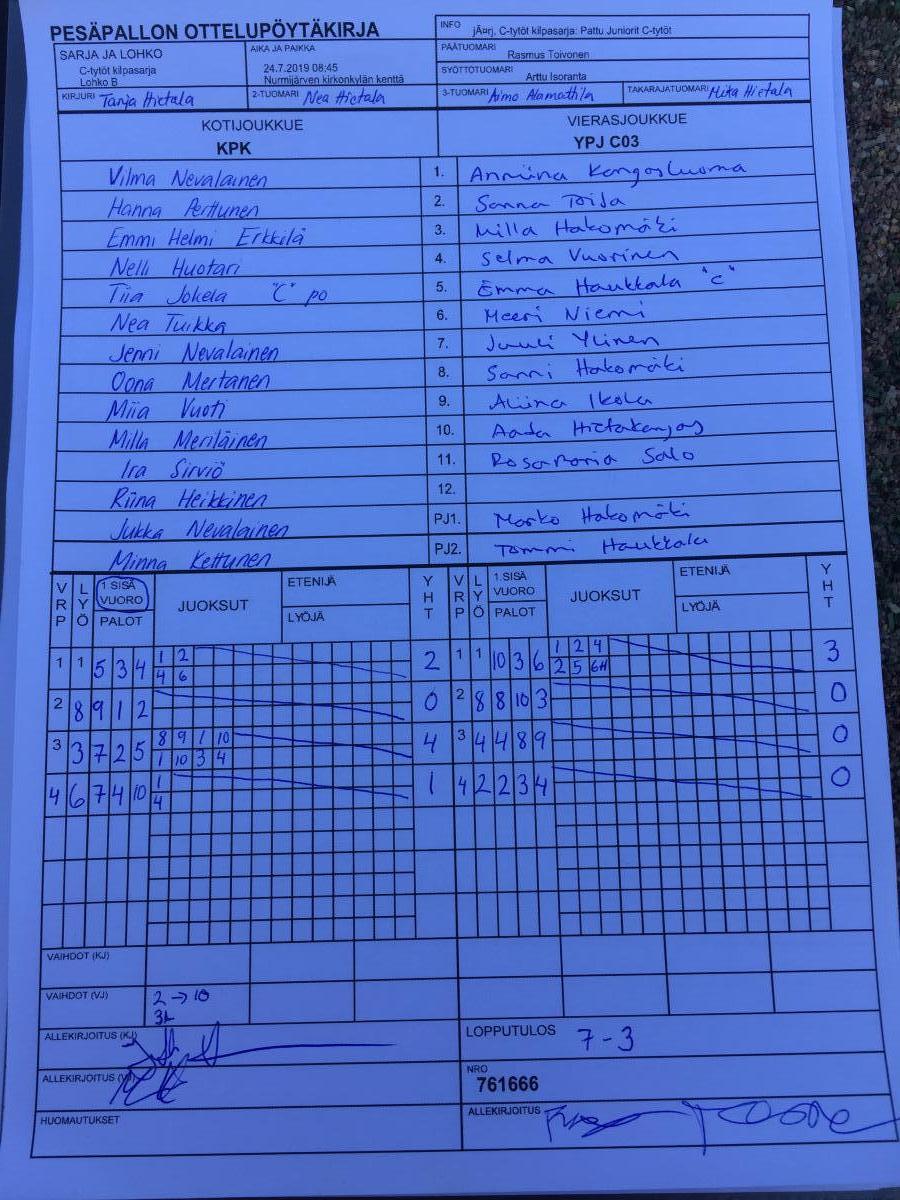 PESÄPALLON OTTELUPÖYTÄKIRJA
INFO jÄ¤rj. C-tytöt kilpasarja: Pattu Juniorit C-tytöt
SARJA JA LOHKO
C-tytöt kilpasarja
Lohko B
AIKA JA PAIKKA
24.7.2019 08:45
Nurmijärven kirkonkylän kenttä
PÄÄTUOMARI Rasmus Toivonen
SYÖTTÖTUOMARI Arttu Isoranta
KIRJURI Tanja Hietala
2-TUOMARI Nea Hietala
3-TUOMARI Aimo Alamattila
TAKARAJATUOMARI Mika Hietala
KOTIJOUKKUE
KPK
VIERASJOUKKUE
YPJ C03
Vilma Nevalainen 1. Anniina Kangasluoma
Hanna Perttunen 2. Sanna Toija
Emmi Helmi Erkkilä 3. Milla Hakomäki
Nelli Huotari 4. Selma Vuorinen
Tiia Jokela "C" po 5. Emma Haukkala "C"
Nea Tuikka 6. Meeri Niemi
Jenni Nevalainen 7. Juuli Ylinen
Oona Mertanen 8. Sanni Hakomäki
Miia Vuoti 9. Aliina Ikola
Milla Meriläinen 10. Aada Hietakangas
Ira Sirviö 11. RosaMaria Salo
Riina Heikkinen 12.
Jukka Nevalainen PJ1. Marko Hakomäki
Minna Kettunen PJ2. Tommi Haukkala
VRP LYÖ 1.SISÄ VUORO PALOT JUOKSUT ETENIJÄ LYÖJÄ YHT VRP LYÖ 1.SISÄ VUORO PALOT JUOKSUT ETENIJÄ LYÖJÄ YHT
1 1 5 3 4 1 2 2 1 1 10 3 6 1 2 4 3
4 6 2 5 6H
2 8 9 1 2 0 2 8 8 10 3 0
3 3 7 2 5 8 9 1 10 4 3 4 4 8 9 0
1 10 3 4
4 6 7 4 10 1 1 4 2 2 3 4 0
4
VAIHDOT (KJ)
VAIHDOT (VJ) 2 → 10
ALLEKIRJOITUS (KJ)
LOPPUTULOS 7 - 3
ALLEKIRJOITUS (VJ)
NRO
761666
HUOMAUTUKSET
ALLEKIRJOITUS